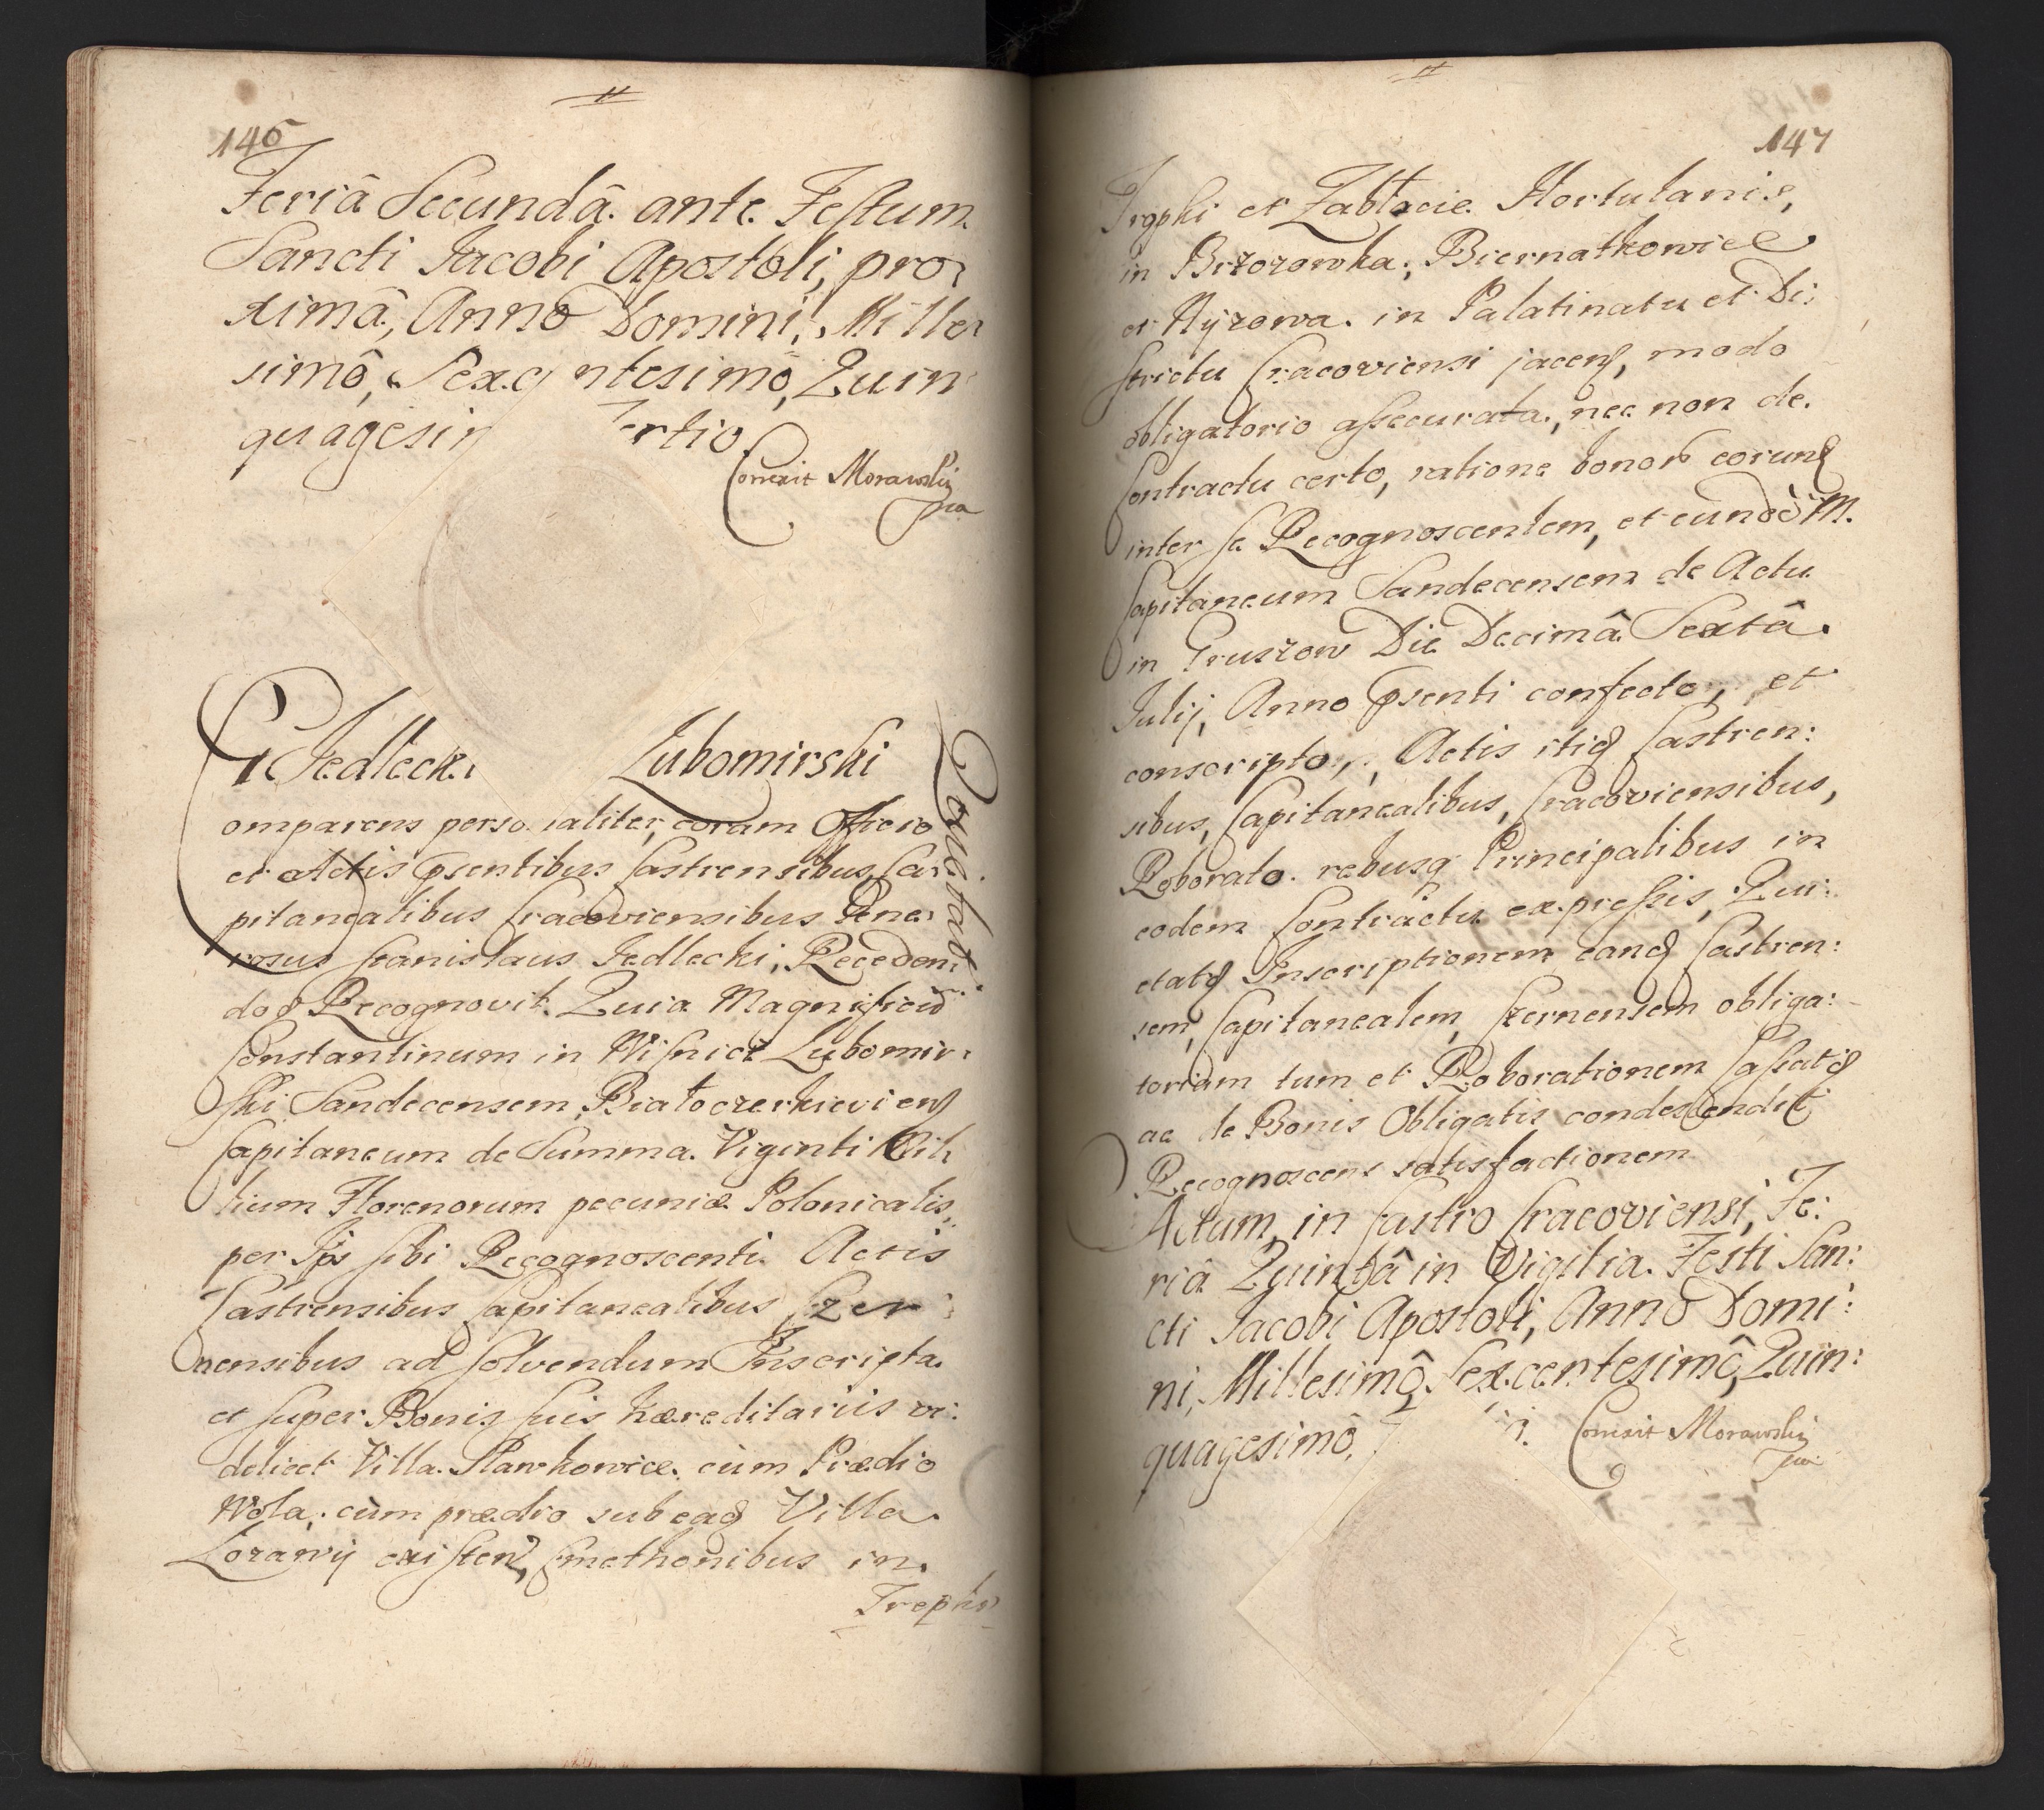 146
Feriâ Secundâ ante Festum
Sancti Jacobi Apostoli, pro
ximâ, Anno Domini, Mille
simô, Sexcentesimô, Quin
quagesim Tertio
Correxit Morawski
mp
Jedlecki Lubomirski
Comparens personaliter, coram Officio
et Actis psentibus Castrensibus, Ca
pitanealibus Cracoviensibus Gene
rosus Stanislaus Jedlecki, Recedend
do & Recognovit. Quia Magnificũ
Constantinum in Wisnicz Lubomir
ski Sandecensem, Białocerkieviens
Capitaneum de Summa Viginti Mil
lium Florenorum pecuniæ Polonicalis
per Ips sibi Recognoscenti Actis
Castrensibus Capitanealibus Czer
nensibus ad solvendum Inscripta
et super Bonis suis hæreditariis vi:
delicet Villa Sławkowice cum Prædio
Wola, cum prædio sub eaq Villa
Lozawij existen, Cmethonibus in
Trophi
Constat
147
Trophi et Zabłocie Hortulanis,
in Brzozowka, Biernatkowice
et Ryzowa in Palatinatu et Di:
strictu Cracoviensi jacen, modo
obligatorio assecurata, nec non de
Contractu certo, ratione bonor eorund
inter se Recognoscentem, et eundẽ M.
Capitaneum Sandecensem de Actu
in Gruszow Die Decimâ Sextâ
Julij, Anno psenti confecto, et
conscripto, Actis itiq Castren:
sibus, Capitanealibus, Cracoviensibus,
Roborato rebusq Principalibus in
eodem Contractu expressis, Qui:
etatq Inscriptionem eanq Castren:
sem, Capitanealem, Czernensem obliga:
toriam tum et Roborationem Cassatq
ac de Bonis Obligatis condescendit
Recognoscens satisfactionem
Actum in Castro Cracoviensi, Fe:
riâ Quintâ in Vigilia Festi San:
cti Jacobi Apostoli, Anno Domi:
ni, Millesimô, Sexcentesimô, Quin:
quagesimô,
Correxit Morawski
mp